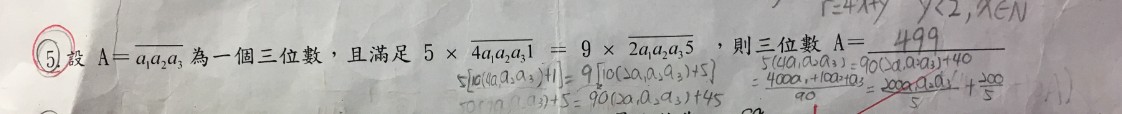 r=4x+y y<2, x∈N
5. 設 A = a₁a₂a₃ 為一個三位數，且滿足 5 × 4a₁a₂a₃1 = 9 × 2a₁a₂a₃5 ，則三位數 A= 499
5[10(4a₁a₂a₃)+1] = 9[10(2a₁a₂a₃)+5] 5(4a₁a₂a₃)=90(2a₁a₂a₃)+40
+5=90(2a₁a₂a₃)+45 = 400a₁+10a₂+a₃/90 = 200a₁a₂a₃/5 + 200/5